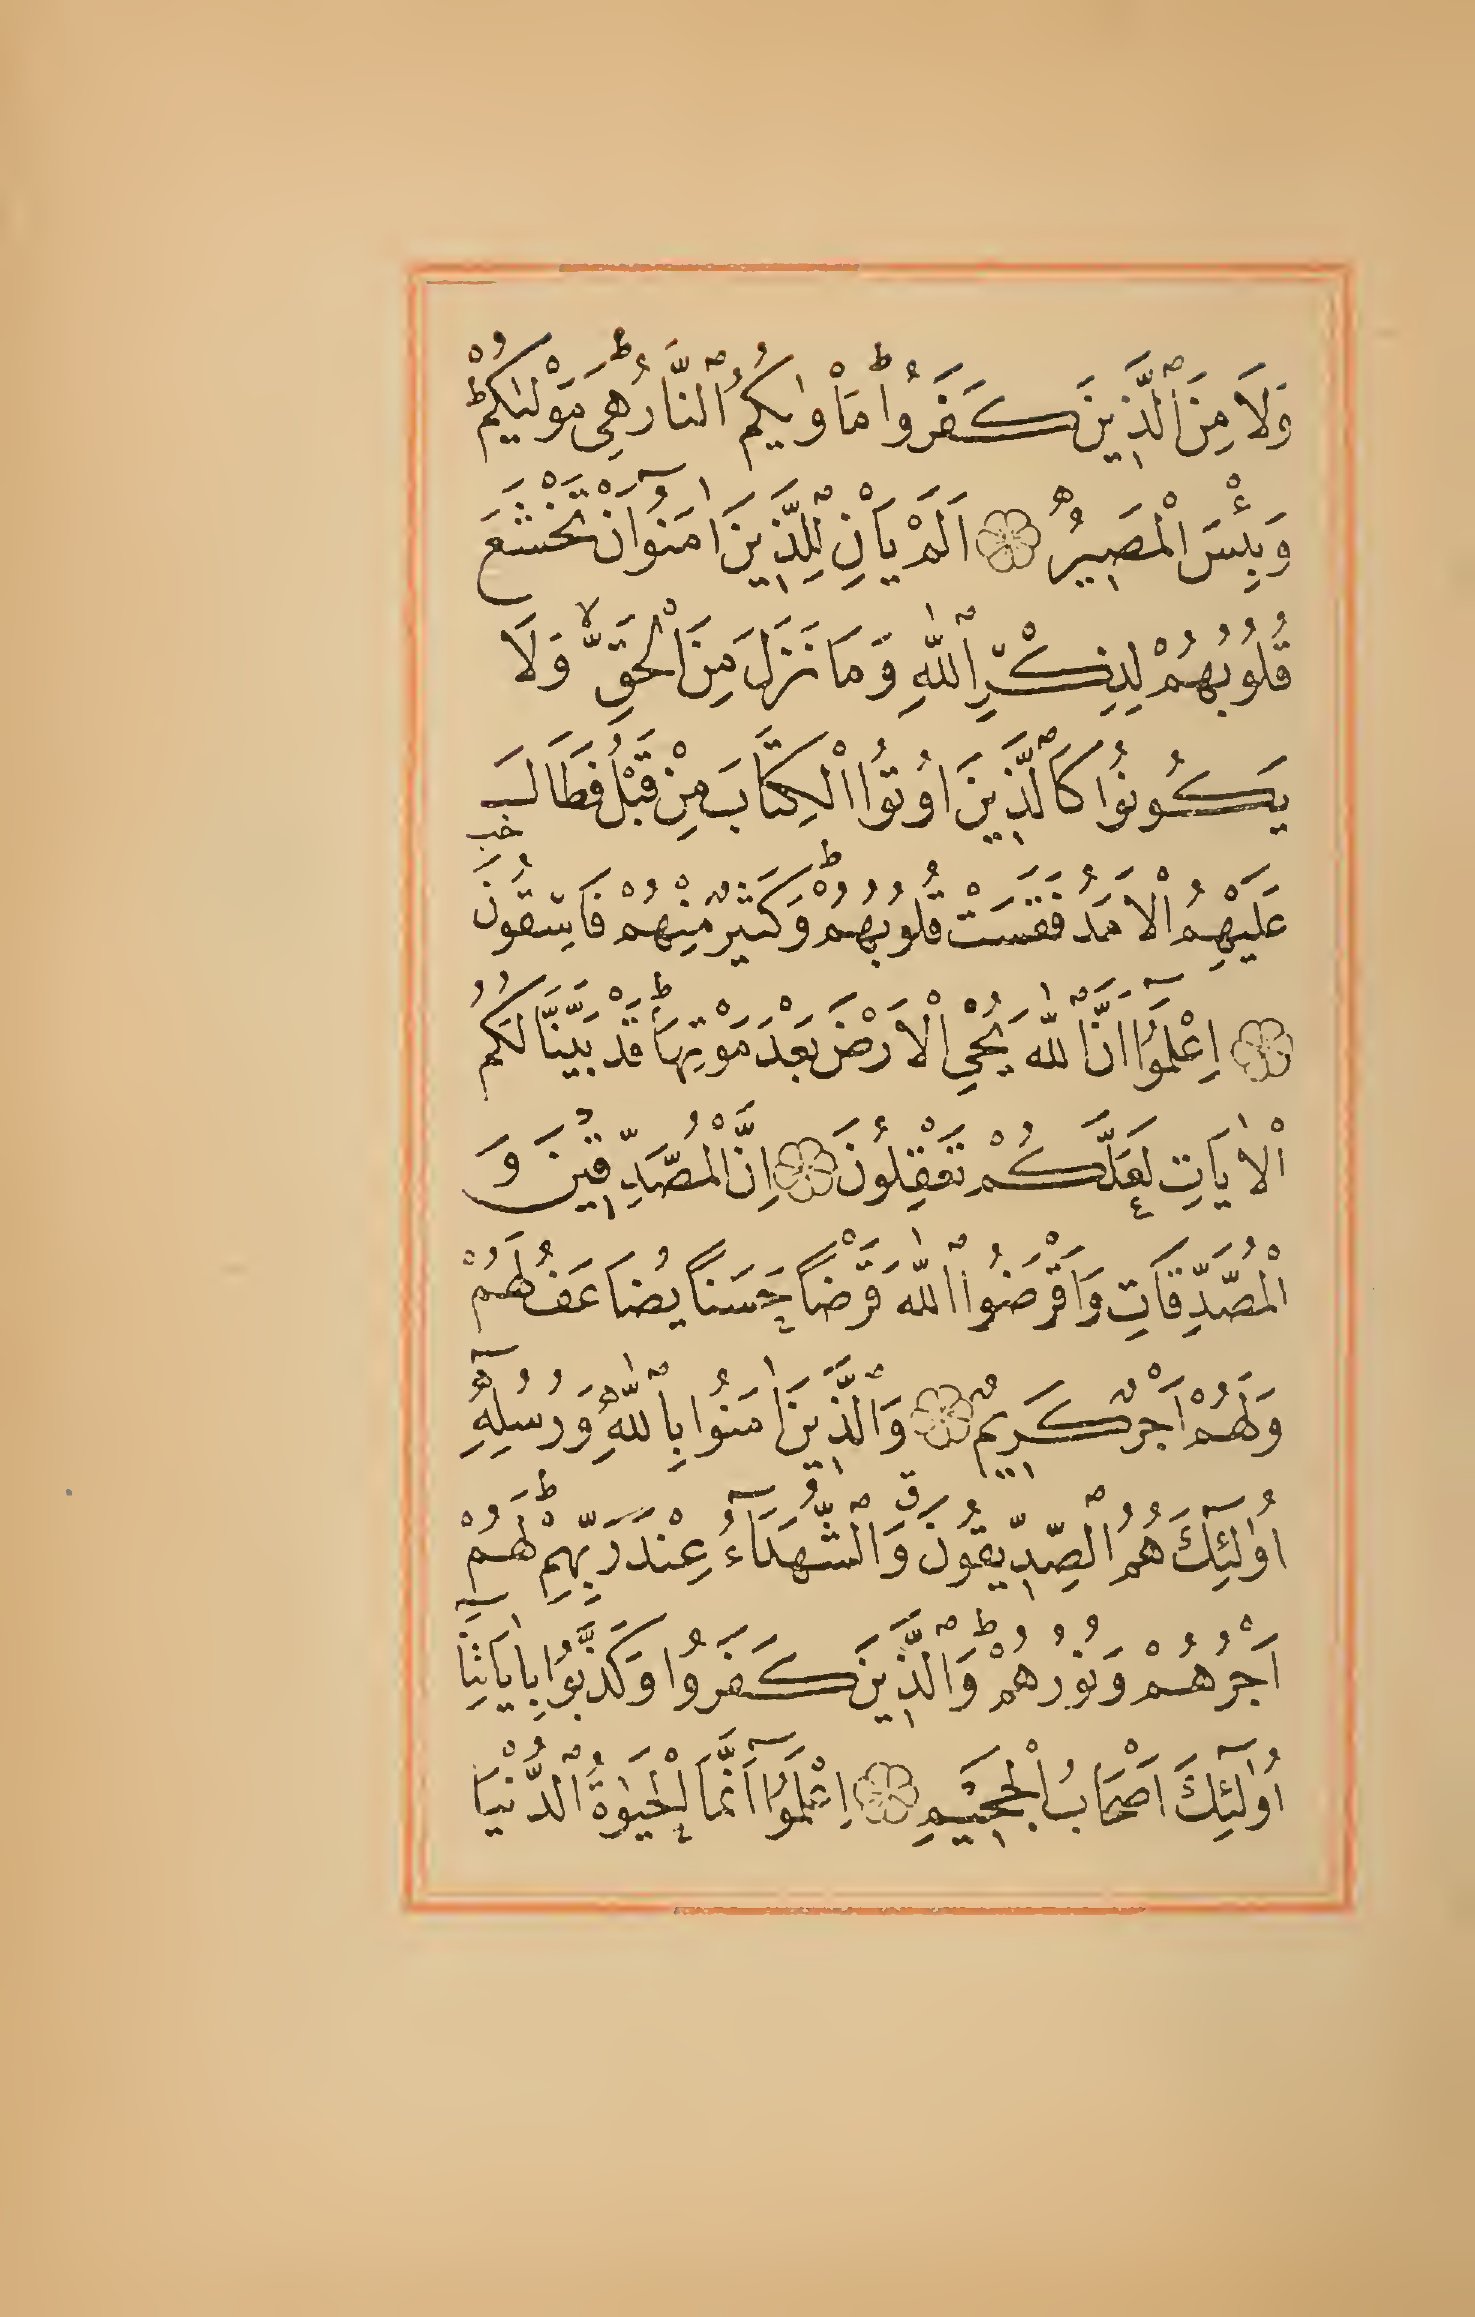 وَلَا مِنَ ٱلَّذِينَ كَفَرُواۜ مَأْوٰيكُمُ ٱلنَّارُۜ هِيَ مَوْلٰيكُمْۜ
وَبِئْسَ الْمَصِيرُ ۝ اَلَمْ يَأْنِ لِلَّذِينَ اٰمَنُوٓا اَنْ تَخْشَعَ
قُلُوبُهُمْ لِذِكْرِ ٱللّٰهِ وَمَا نَزَلَ مِنَ الْحَقِّۙ وَلَا
يَكُونُوا كَٱلَّذِينَ اُوتُوا الْكِتَابَ مِنْ قَبْلُ فَطَالَ
عَلَيْهِمُ الْاَمَدُ فَقَسَتْ قُلُوبُهُمْۜ وَكَثِيرٌ مِنْهُمْ فَاسِقُونَ
۝ اِعْلَمُوٓا اَنَّ ٱللّٰهَ يُحْيِ الْاَرْضَ بَعْدَ مَوْتِهَاۜ قَدْ بَيَّنَّا لَكُمُ
الْاٰيَاتِ لَعَلَّكُمْ تَعْقِلُونَ ۝ اِنَّ الْمُصَّدِّقِينَ وَ
الْمُصَّدِّقَاتِ وَاَقْرَضُوا ٱللّٰهَ قَرْضًا حَسَنًا يُضَاعَفُ لَهُمْ
وَلَهُمْ اَجْرٌ كَرِيمٌ ۝ وَٱلَّذِينَ اٰمَنُوا بِٱللّٰهِ وَرُسُلِهِٓ
اُولٰٓئِكَ هُمُ ٱلصِّدِّيقُونَۗ وَٱلشُّهَدَٓاءُ عِنْدَ رَبِّهِمْۜ لَهُمْ
اَجْرُهُمْ وَنُورُهُمْۜ وَٱلَّذِينَ كَفَرُوا وَكَذَّبُوا بِاٰيَاتِنَٓا
اُولٰٓئِكَ اَصْحَابُ الْجَحِيمِ ۝ اِعْلَمُوٓا اَنَّمَا الْحَيٰوةُ ٱلدُّنْيَا